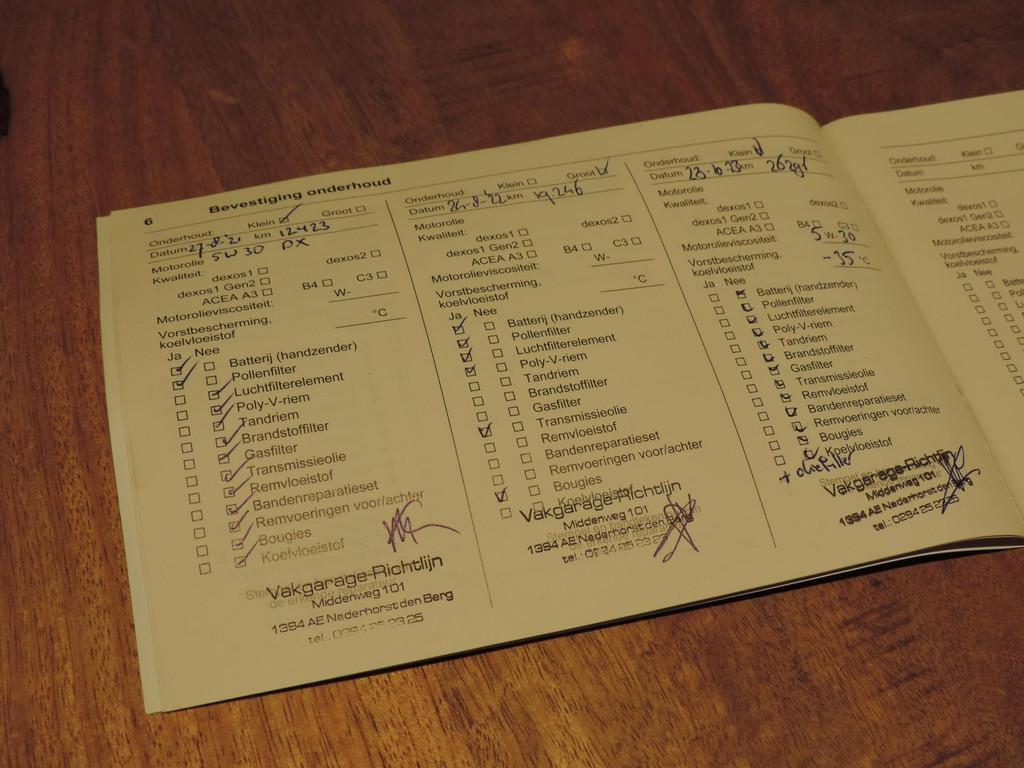 6 Bevestiging onderhoud
Onderhoud: Klein Groot
Datum 27-8-21 km 12423
Motorolie 5W30 DX
Kwaliteit: dexos1 dexos2
dexos1 Gen2
ACEA A3 B4 C3
Motorolieviscositeit: W-
Vorstbescherming,
koelvloeistof °C
Ja Nee
Batterij (handzender)
Pollenfilter
Luchtfilterelement
Poly-V-riem
Tandriem
Brandstoffilter
Gasfilter
Transmissieolie
Remvloeistof
Bandenreparatieset
Remvoeringen voor/achter
Bougies
Koelvloeistof
Vakgarage Richtlijn
Middenweg 101
1394 AE Nederhorst den Berg
tel.: 0294 25 23 25
Onderhoud: Klein Groot
Datum 24-8-22 km 19246
Motorolie
Kwaliteit: dexos1 dexos2
dexos1 Gen2
ACEA A3 B4 C3
Motorolieviscositeit: W-
Vorstbescherming,
koelvloeistof °C
Ja Nee
Batterij (handzender)
Pollenfilter
Luchtfilterelement
Poly-V-riem
Tandriem
Brandstoffilter
Gasfilter
Transmissieolie
Remvloeistof
Bandenreparatieset
Remvoeringen voor/achter
Bougies
Koelvloeistof
Vakgarage Richtlijn
Middenweg 101
1394 AE Nederhorst den Berg
tel.: 0294 25 23 25
Onderhoud: Klein Groot
Datum 23-10-23 km
Motorolie
Kwaliteit: dexos1 dexos2
dexos1 Gen2
ACEA A3 B4 C3
Motorolieviscositeit: 5 W-30
Vorstbescherming,
koelvloeistof -35 °C
Ja Nee
Batterij (handzender)
Pollenfilter
Luchtfilterelement
Poly-V-riem
Tandriem
Brandstoffilter
Gasfilter
Transmissieolie
Remvloeistof
Bandenreparatieset
Remvoeringen voor/achter
Bougies
Koelvloeistof
+ oliefilter
Vakgarage Richtlijn
Middenweg 101
1394 AE Nederhorst den Berg
tel.: 0294 25 23
Onderhoud: Klein Groot
Datum km
Motorolie
Kwaliteit: dexos1
dexos1 Gen2
ACEA A3
Motorolieviscositeit
Vorstbescherming,
koelvloeistof
Ja Nee